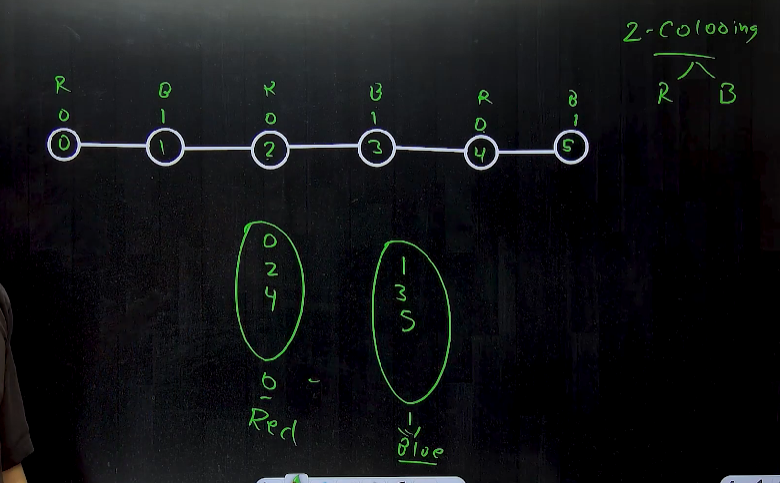 2-Coloring
R B
R B R B R B
0 1 0 1 0 1
0 1 2 3 4 5
0 1
2 3
4 5
0 - 1
Red Blue